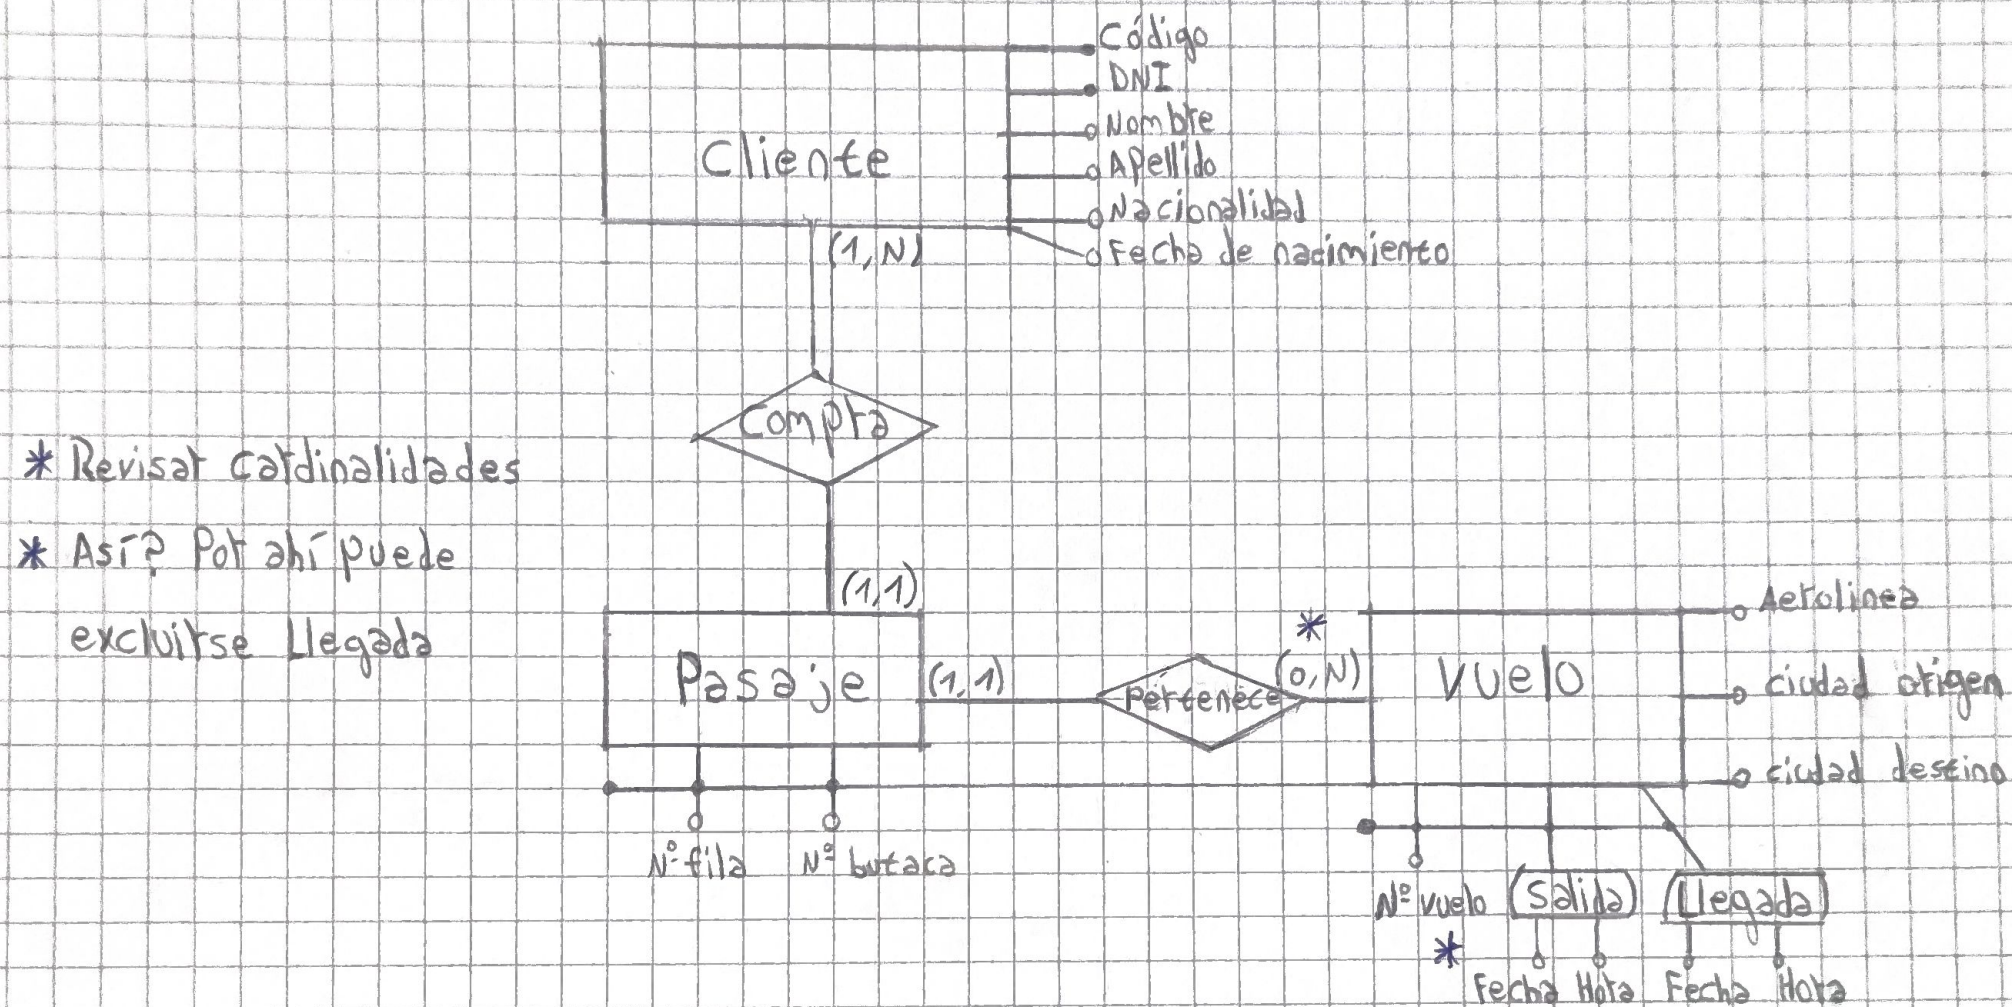 Código
DNI
Nombre
Apellido
Nacionalidad
Fecha de nacimiento
Cliente
(1,N)
Compra
* Revisar cardinalidades
* Así? Por ahí puede
excluirse Llegada
(1,1)
Pasaje
(1,1)
Pertenece
*
(0,N)
Vuelo
Aerolinea
ciudad origen
ciudad destino
Nº fila
Nº butaca
Nº vuelo
*
Salida
Llegada
Fecha Hora
Fecha Hora